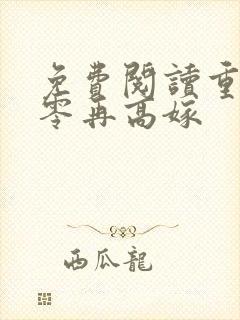 免費閱讀重
零再高嫁
西瓜龍